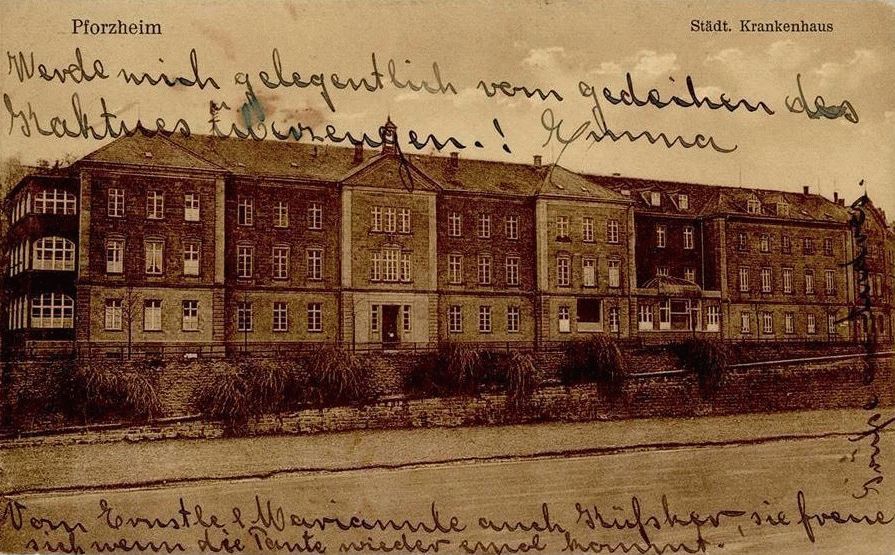 Pforzheim
Städt. Krankenhaus
Werde mich gelegentlich vom gedeihen des
Kaktues überzeugen.! Emma
Vom Ernstle & Mariannle auch Küssher, sie freue
sich wenn die Tante wieder emol kommt.
Grüße